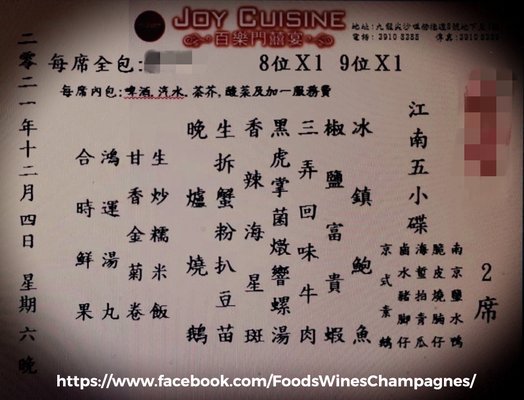 JOY CUISINE
百樂門囍宴
地址: 九龍尖沙咀
電話: 3910 傳真: 3910
每席全包:
8位X1 9位X1
每席內包: 啤酒, 汽水, 茶芥, 酸菜及加一服務費
2席
江南五小碟
南京鹽水鴨
脆皮燒腩仔
海蜇拍青瓜
鹵水豬腳仔
京式素鵝
冰鎮鮑魚
椒鹽富貴蝦
三弄回味牛肉
黑虎掌菌燉響螺湯
香辣海星斑
生拆蟹粉扒豆苗
晚爐燒鵝
生炒糯米飯
甘香金菊卷
鴻運湯丸
合時鮮果
二零二一年十二月四日 星期六晚
https://www.facebook.com/FoodsWinesChampagnes/